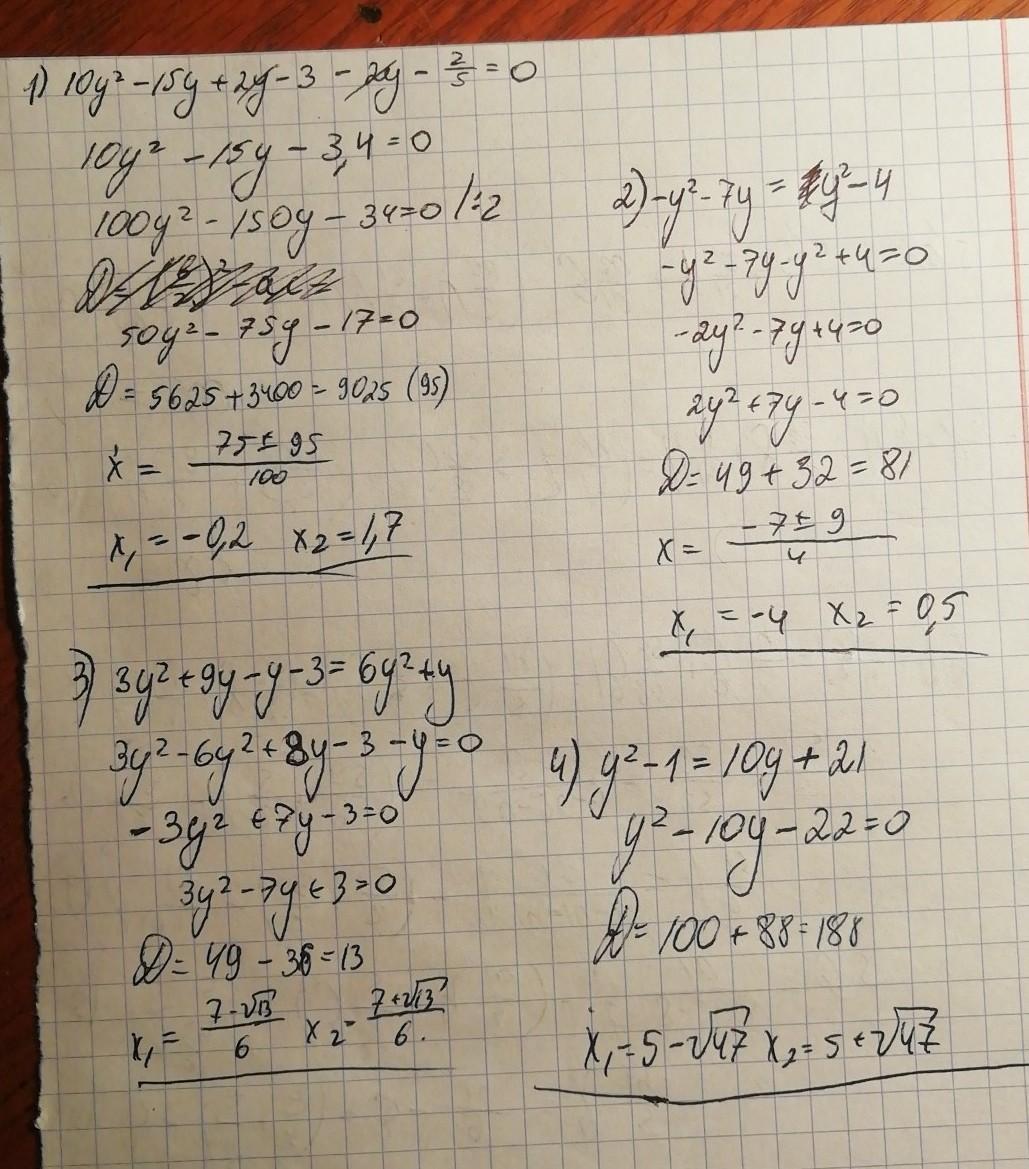 1) 10y² - 15y + 2y - 3 - 2y - 2/5 = 0
10y² - 15y - 3,4 = 0
100y² - 150y - 34 = 0 /:2
50y² - 75y - 17 = 0
D = 5625 + 3400 = 9025 (95)
x = (75 ± 95)/100
x₁ = -0,2 x₂ = 1,7
2) -y² - 7y = y² - 4
-y² - 7y - y² + 4 = 0
-2y² - 7y + 4 = 0
2y² + 7y - 4 = 0
D = 49 + 32 = 81
x = (-7 ± 9)/4
x₁ = -4 x₂ = 0,5
3) 3y² + 9y - y - 3 = 6y² + y
3y² - 6y² + 8y - 3 - y = 0
-3y² + 7y - 3 = 0
3y² - 7y + 3 = 0
D = 49 - 36 = 13
x₁ = (7 - √13)/6 x₂ = (7 + √13)/6.
4) y² - 1 = 10y + 21
y² - 10y - 22 = 0
D = 100 + 88 = 188
x₁ = 5 - √47 x₂ = 5 + √47